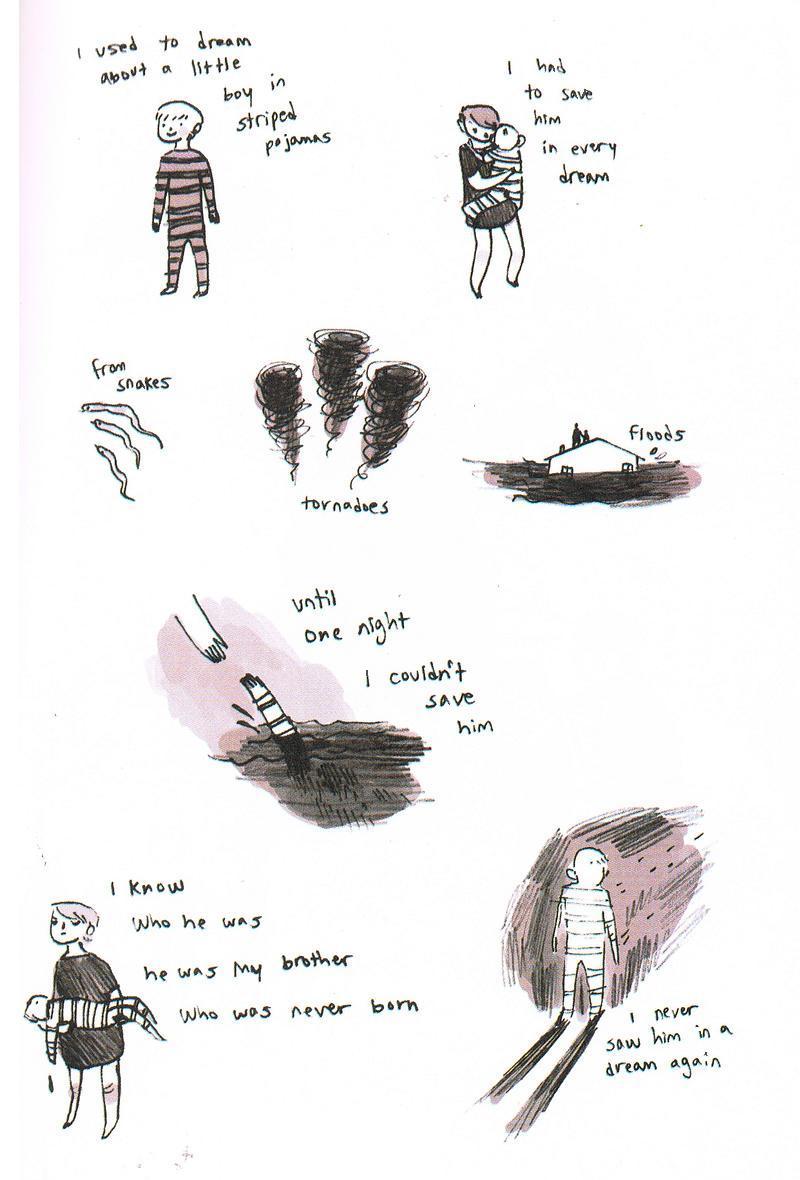 I used to dream
about a little
boy in
striped
pajamas
I had
to save
him
in every
dream
from
snakes
tornadoes
floods
until
one night
I couldn't
save
him
I know
Who he was
he was My brother
Who was never born
I never
saw him in a
dream again